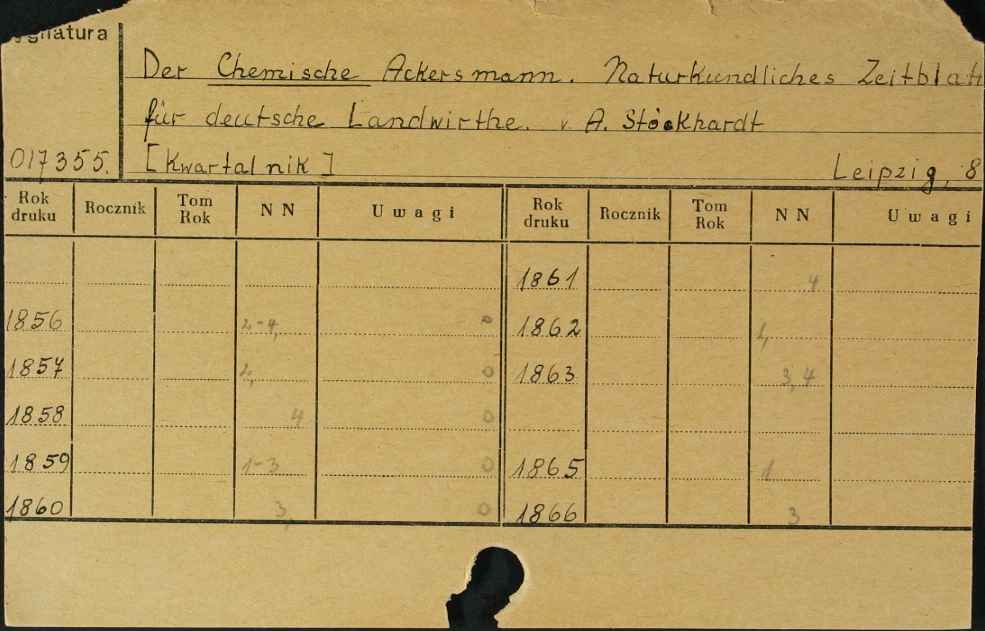 Sygnatura
Der Chemische Ackersmann. Naturkundliches Zeitblatt
für deutsche Landwirthe. v A. Stöckhardt
017355. [Kwartalnik] Leipzig, 8
Rok druku Rocznik Tom Rok NN Uwagi Rok druku Rocznik Tom Rok NN Uwagi
1861 4
1856 2-4, 0 1862 1,
1857 2, 0 1863 3,4
1858 4 0
1859 1-3 0 1865 1
1860 3, 0 1866 3